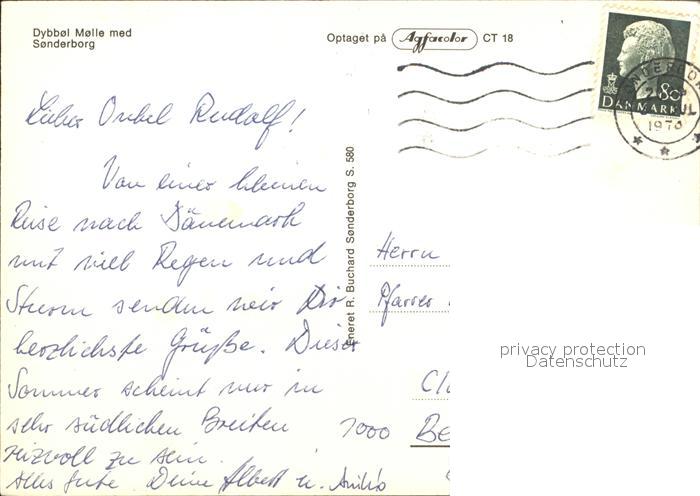 Dybbøl Mølle med
Sønderborg
Optaget på Agfacolor CT 18
80
DANMARK
1978
Lieber Onkel Rudolf!
Von einer kleinen
Reise nach Dänemark
mit viel Regen und
Sturm senden wir Dir
herzlichste Grüße. Dieser
Sommer scheint nur in
sehr südlichen Breiten
reizvoll zu sein.
Alles Gute Deine Albert u.
Eneret R. Buchard Sønderborg S. 580
Herrn
Pfarrer
1000 BE
privacy protection
Datenschutz